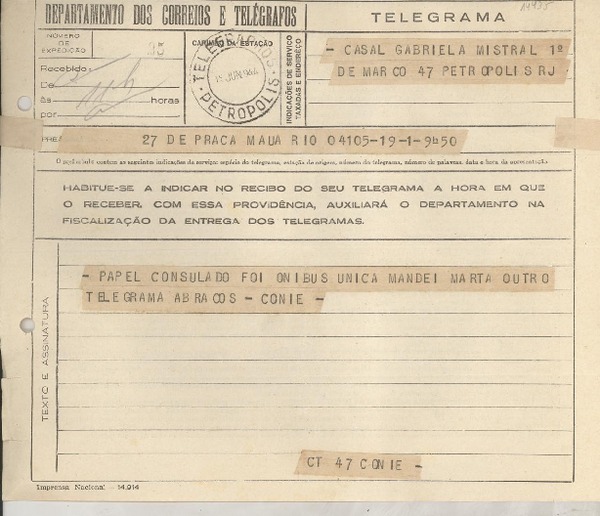 DEPARTAMENTO DOS CORREIOS E TELÉGRAFOS
TELEGRAMA
NÚMERO DE EXPEDIÇÃO
35
CARIMBO DA ESTAÇÃO
PETROPOLIS
INDICAÇÕES DE SERVIÇO TAXADAS E ENDEREÇO
Recebido:
De
às horas
por
- CASAL GABRIELA MISTRAL 1º
DE MARCO 47 PETROPOLIS RJ -
PREÂ
27 DE PRACA MAUA RIO 04105-19-1-9H50
O preâmbulo contém as seguintes indicações de serviço: espécie do telegrama, estação de origem, número do telegrama, número de palavras, data e hora da apresentação
HABITUE-SE A INDICAR NO RECIBO DO SEU TELEGRAMA A HORA EM QUE
O RECEBER. COM ESSA PROVIDÊNCIA, AUXILIARÁ O DEPARTAMENTO NA
FISCALIZAÇÃO DA ENTREGA DOS TELEGRAMAS.
TEXTO E ASSINATURA
- PAPEL CONSULADO FOI ONIBUS UNICA MANDEI MARTA OUTRO
TELEGRAMA ABRACOS - CONIE -
CT 47 CONIE -
Imprensa Nacional - 14.914